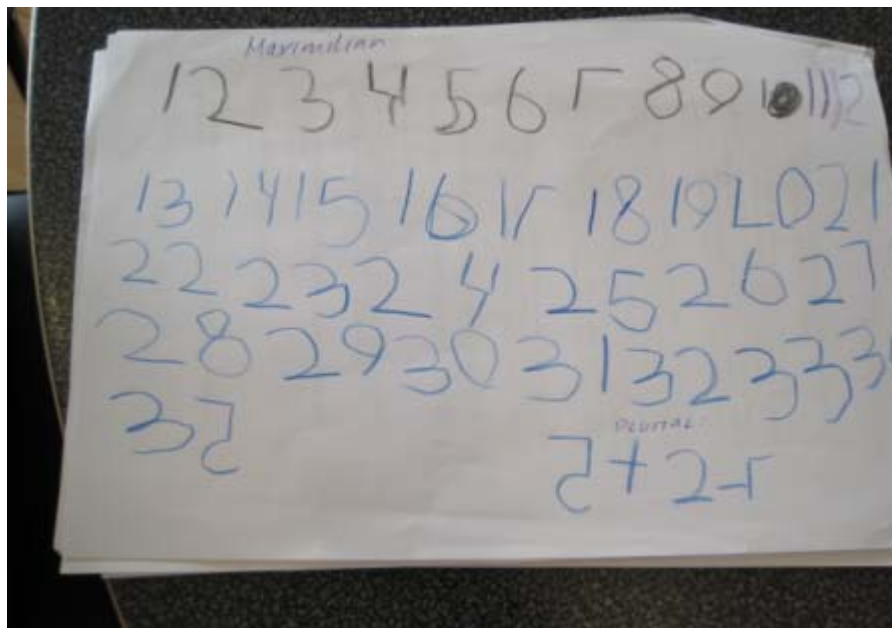 Maximilian
1 2 3 4 5 6 7 8 9 10 11 12
13 14 15 16 17 18 19 20 21
22 23 24 25 26 27
28 29 30 31 32 33
35
5 + 2 - 7